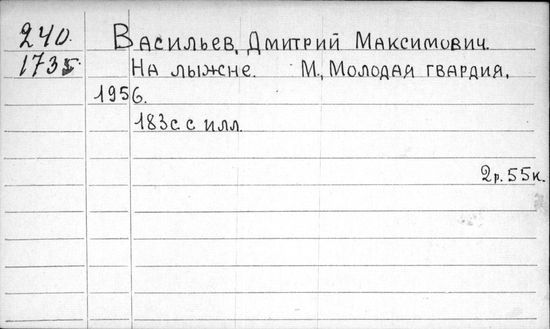 240. Васильев, Дмитрий Максимович.
1735 На лыжне. М., Молодая гвардия,
1956.
183с. с илл.
2р. 55к.